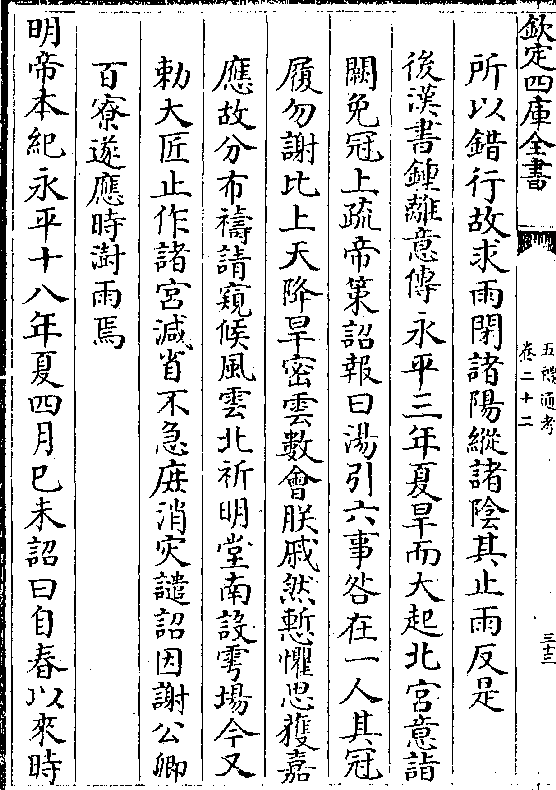 欽定四庫全書
五禮通考
卷二十二
三十三
所以錯行故求雨閉諸陽縱諸陰其止雨反是
後漢書鍾離意傳永平三年夏旱而大起北宮意詣
闕免冠上疏帝策詔報曰湯引六事咎在一人其冠
履勿謝比上天降旱密雲數會朕戚然慙懼思獲嘉
應故分布禱請窺候風雲北祈明堂南設雩場今又
勅大匠止作諸宮減省不急庶消灾譴詔因謝公卿
百寮遂應時澍雨焉
明帝本紀永平十八年夏四月巳未詔曰自春以來時